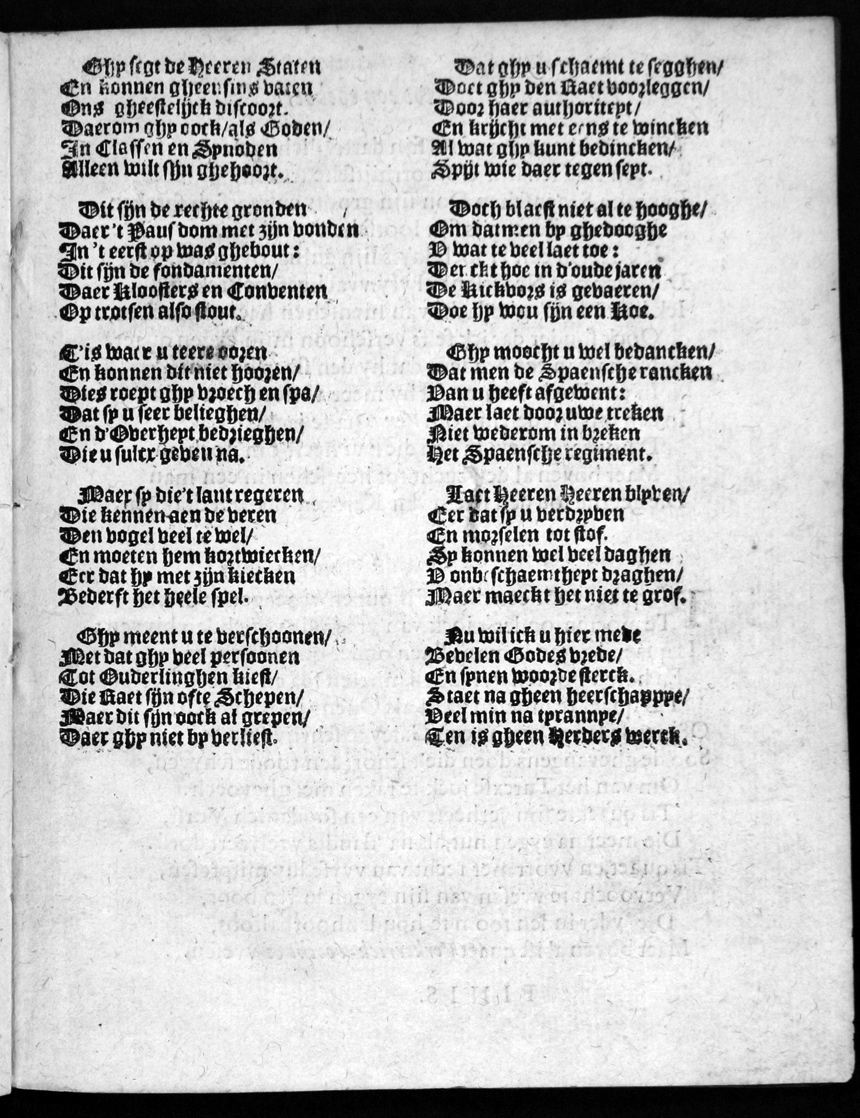 Ghy segt de Heeren Staten
En konnen gheensins vaten
Ons gheestelijck discoort.
Daerom ghy oock/als Goden/
In Classen en Synoden
Alleen wilt sijn ghehoort.
Dit sijn de rechte gronden
Daer 't Pausdom met zijn vonden
In 't eerst op was ghebout:
Dit sijn de fondamenten/
Daer Kloosters en Conventen
Op trotsen also stout.
T'is waer u teere ooren
En konnen dit niet hooren/
Dies roept ghy vroech en spa/
Dat sy u seer belieghen/
En d'Overheyt bedrieghen/
Die u sulcx geven na.
Maer sy die't lant regeren
Die kennen aen de veren
Den vogel veel te wel/
En moeten hem kortwiecken/
Eer dat hy met zijn kiecken
Bederft het heele spel.
Ghy meent u te verschoonen/
Met dat ghy veel persoonen
Tot Ouderlinghen kiest/
Die Raet sijn ofte Schepen/
Maer dit sijn oock al grepen/
Daer ghy niet by verliest.
Dat ghy u schaemt te segghen/
Doet ghy den Raet voorleggen/
Door haer authoriteyt/
En krijcht met eens te wincken
Al wat ghy kunt bedincken/
Spijt wie daer tegen seyt.
Doch blaest niet al te hooghe/
Om datmen by ghedooghe
V wat te veel laet toe:
Denckt hoe in d'oude jaren
De Kickvors is gevaeren/
Doe hy wou sijn een Koe.
Ghy moocht u wel bedancken/
Dat men de Spaensche rancken
Van u heeft afgewent:
Maer laet door uwe treken
Niet wederom in breken
Het Spaensche regiment.
Laet Heeren Heeren blyven/
Eer dat sy u verdryven
En morselen tot stof.
Sy konnen wel veel daghen
V onbeschaemtheyt draghen/
Maer maeckt het niet te grof.
Nu wil ick u hier mede
Bevelen Godes vrede/
En synen woorde sterck.
Staet na gheen heerschappye/
Veel min na tyrannye/
Ten is gheen Herders werck.